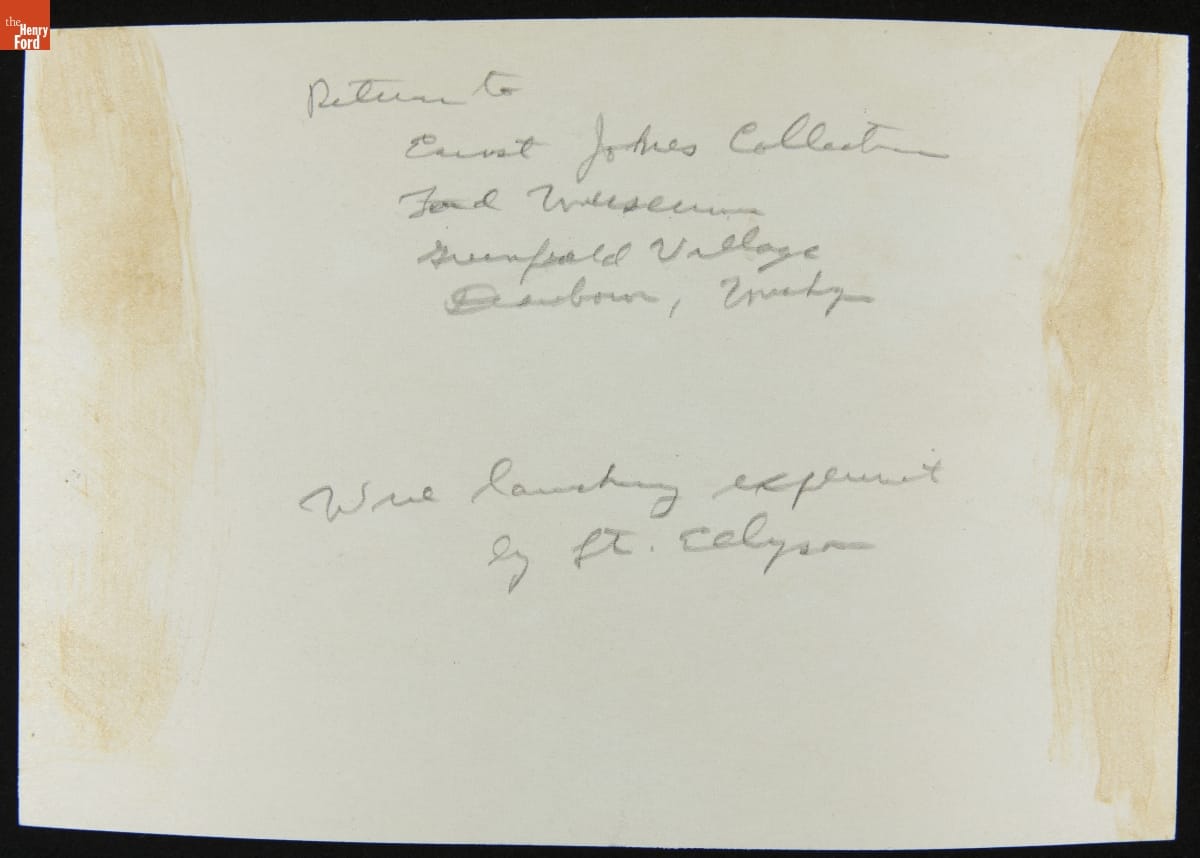 the
Henry
Ford
Return to
Ernest Jones Collection
Ford Museum
Greenfield Village
Dearborn, Michigan
Wire launching experiment
by Lt. Ellyson